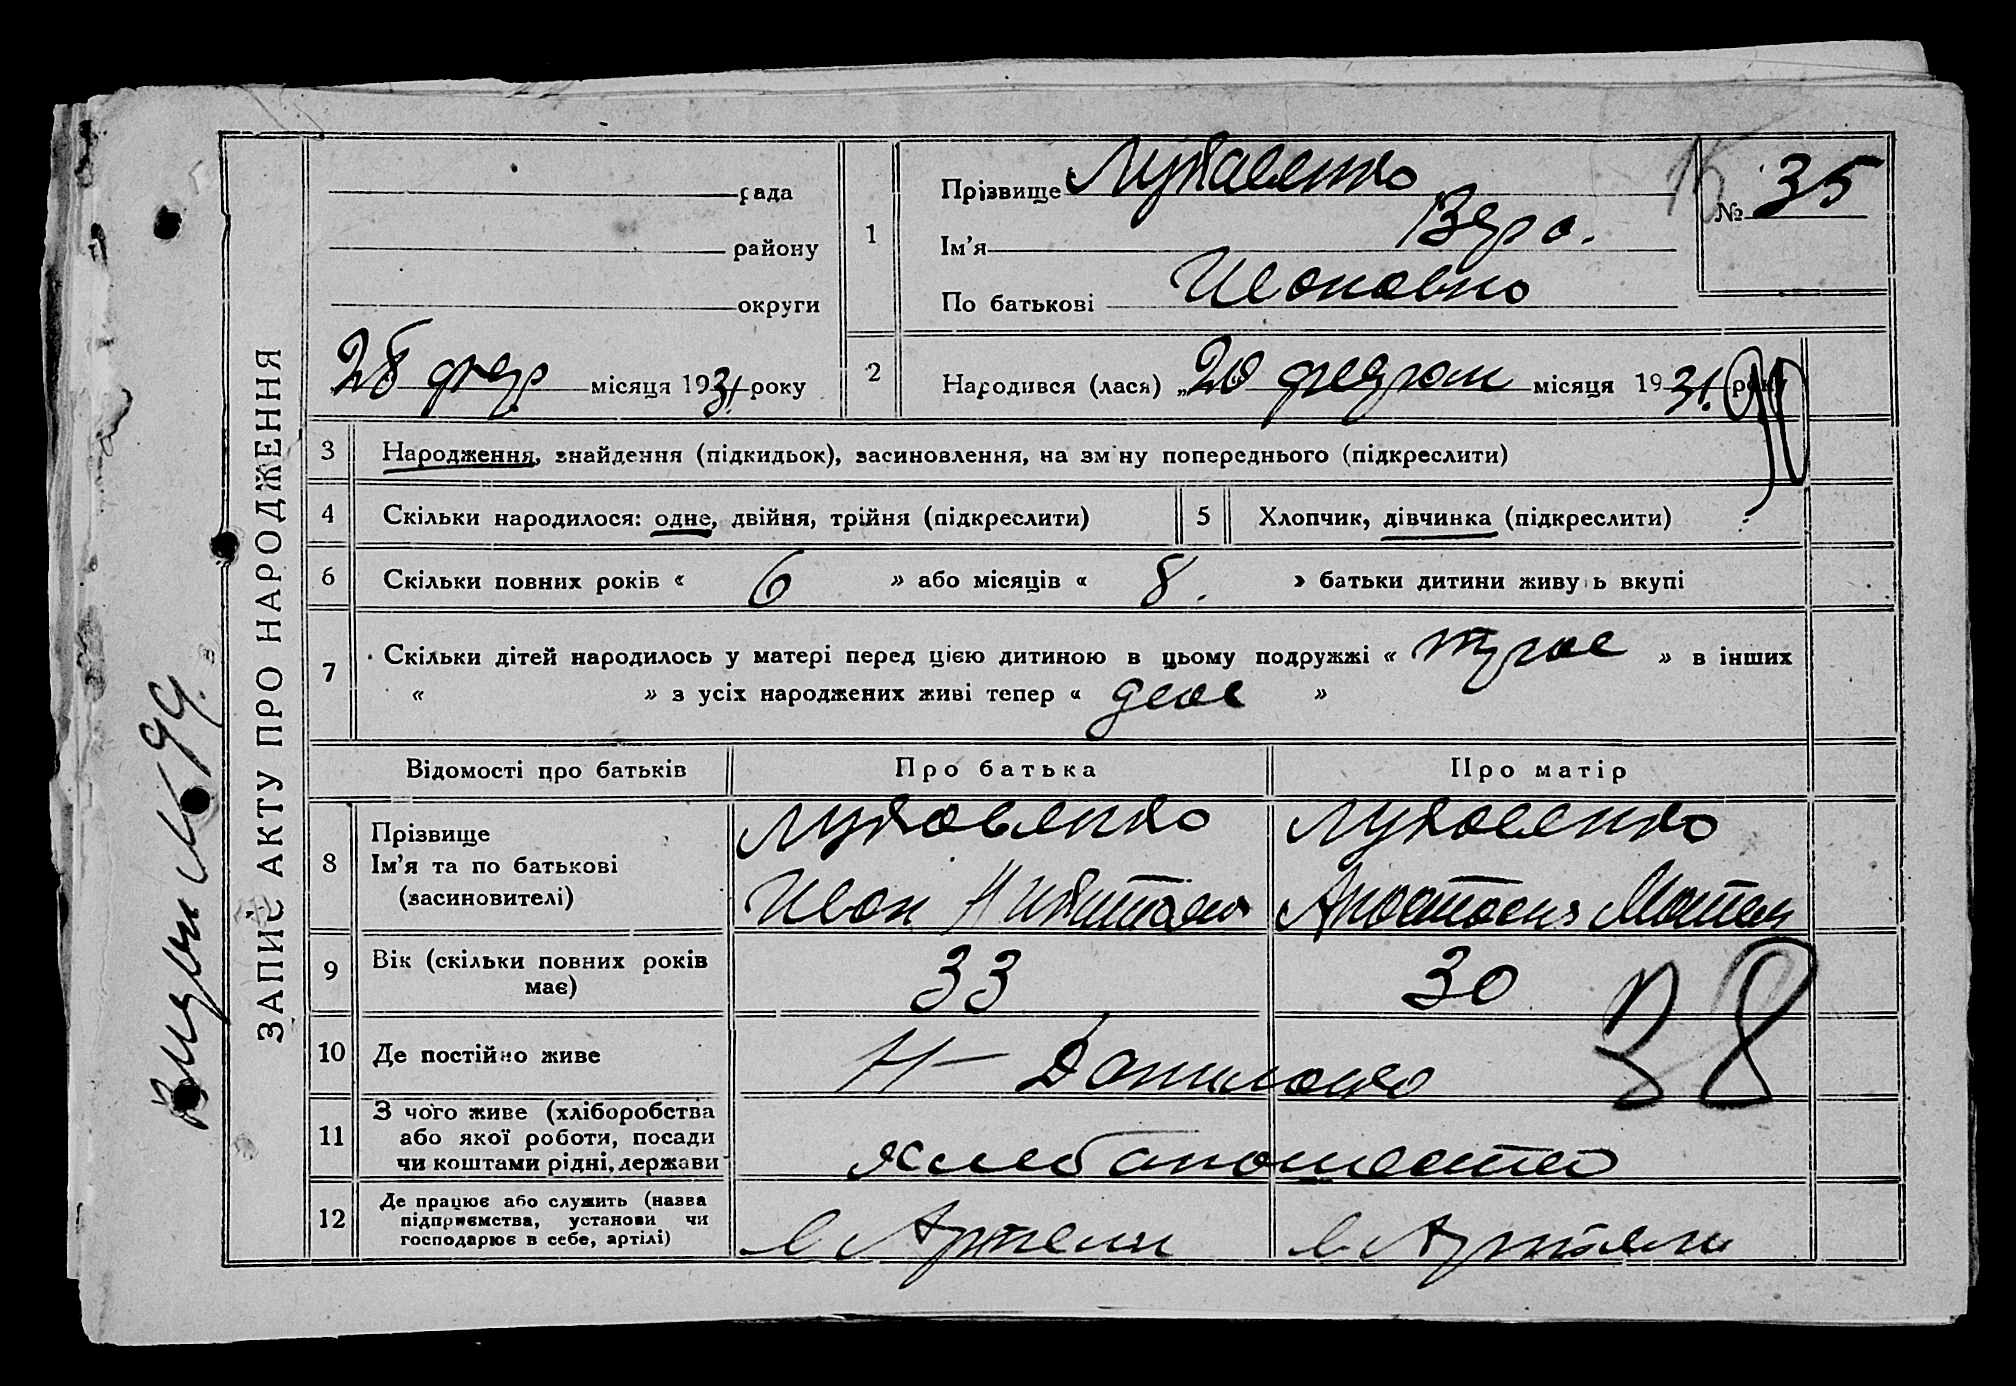 ЗАПИС АКТУ ПРО НАРОДЖЕННЯ
рада
району
округи
28 февр місяця 1931 року
1
Прізвище Луковенко
Ім'я Вера.
По батькові Ивоновно
№ 35
2
Народився (лася) „20 февроля місяця 1931. року
3 Народження, знайдення (підкидьок), засиновлення, на зміну попереднього (підкреслити)
4 Скільки народилося: одне, двійня, трійня (підкреслити)
5 Хлопчик, дівчинка (підкреслити)
6 Скільки повних років « 6 » або місяців « 8. » батьки дитини живуть вкупі
7 Скільки дітей народилось у матері перед цією дитиною в цьому подружжі « » в інших
« » з усіх народжених живі тепер « двое »
Відомості про батьків Про батька Про матір
8 Прізвище
Ім'я та по батькові
(засиновителі)
Луковенко
Ивон Никитович
Луковенко
9 Вік (скільки повних років
має)
33 30
38
10 Де постійно живе
Н - Дониловко
11 З чого живе (хліборобства
або якої роботи, посади
чи коштами рідні, держави
хлебопошество
12 Де працює або служить (назва
підприємства, установи чи
господарює в себе, артілі)
в Артели в Артели